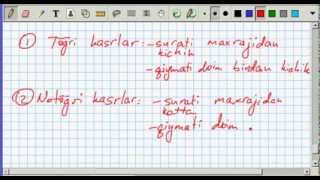 ① To'g'ri kasrlar: - surati maxrajidan
kichik
- qiymati doim birdan kichik
② Noto'g'ri kasrlar: - surati maxrajidan
katta
- qiymati doim